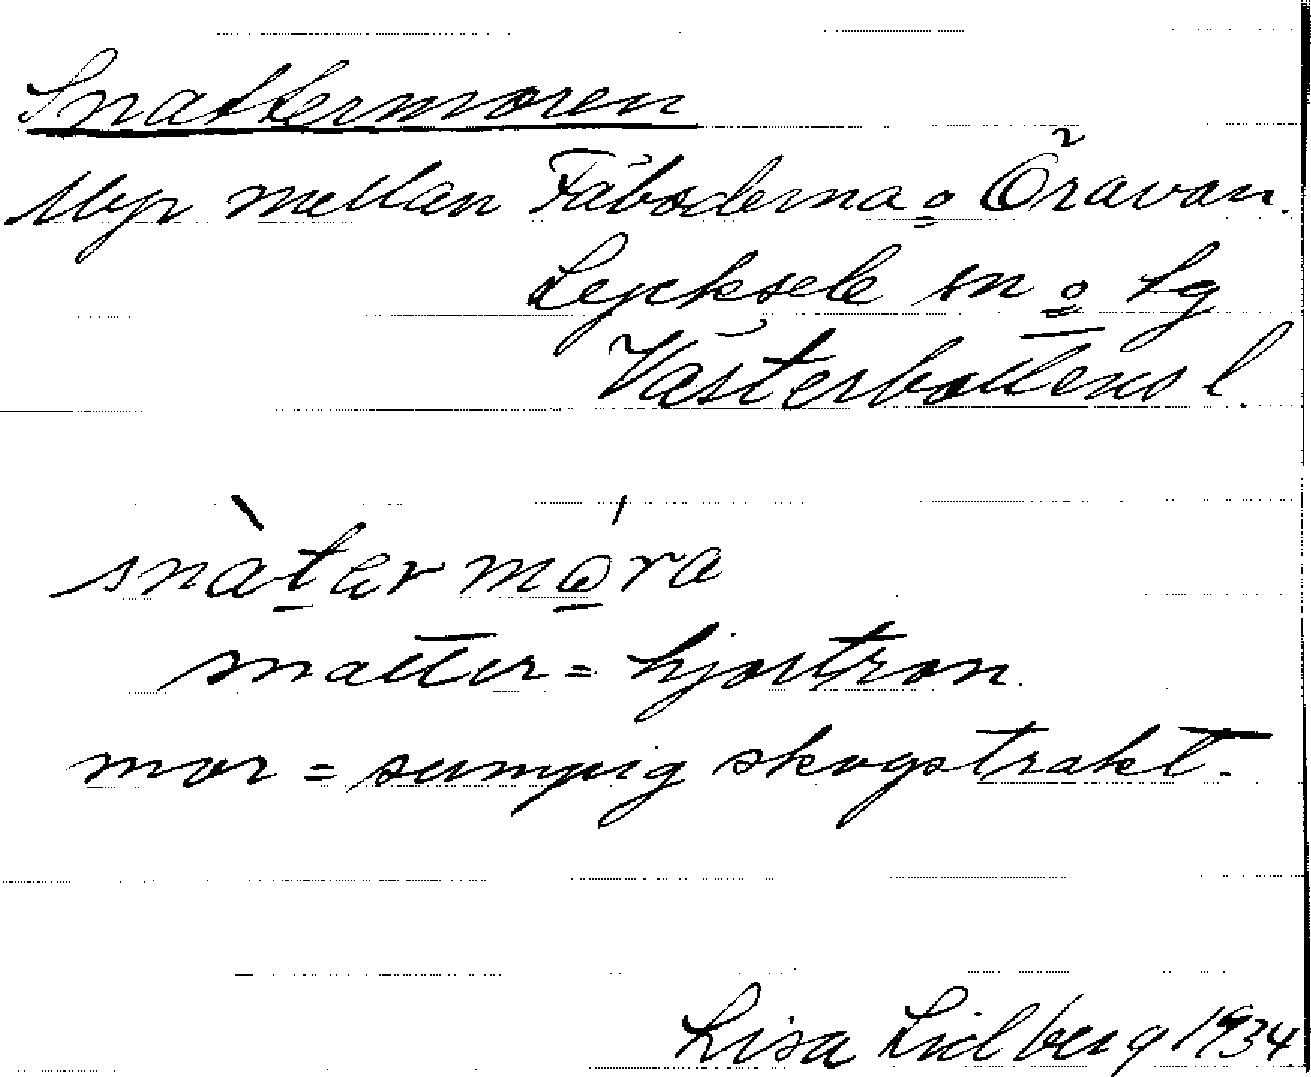 Snattermoren
Myr mellan Fäboderna o Öravan.
Lycksele sn o lg
Västerbottens l.
snàtermóra
snatter = hjortron.
mor = sumpig skogstrakt.
Lisa Lidberg 1934